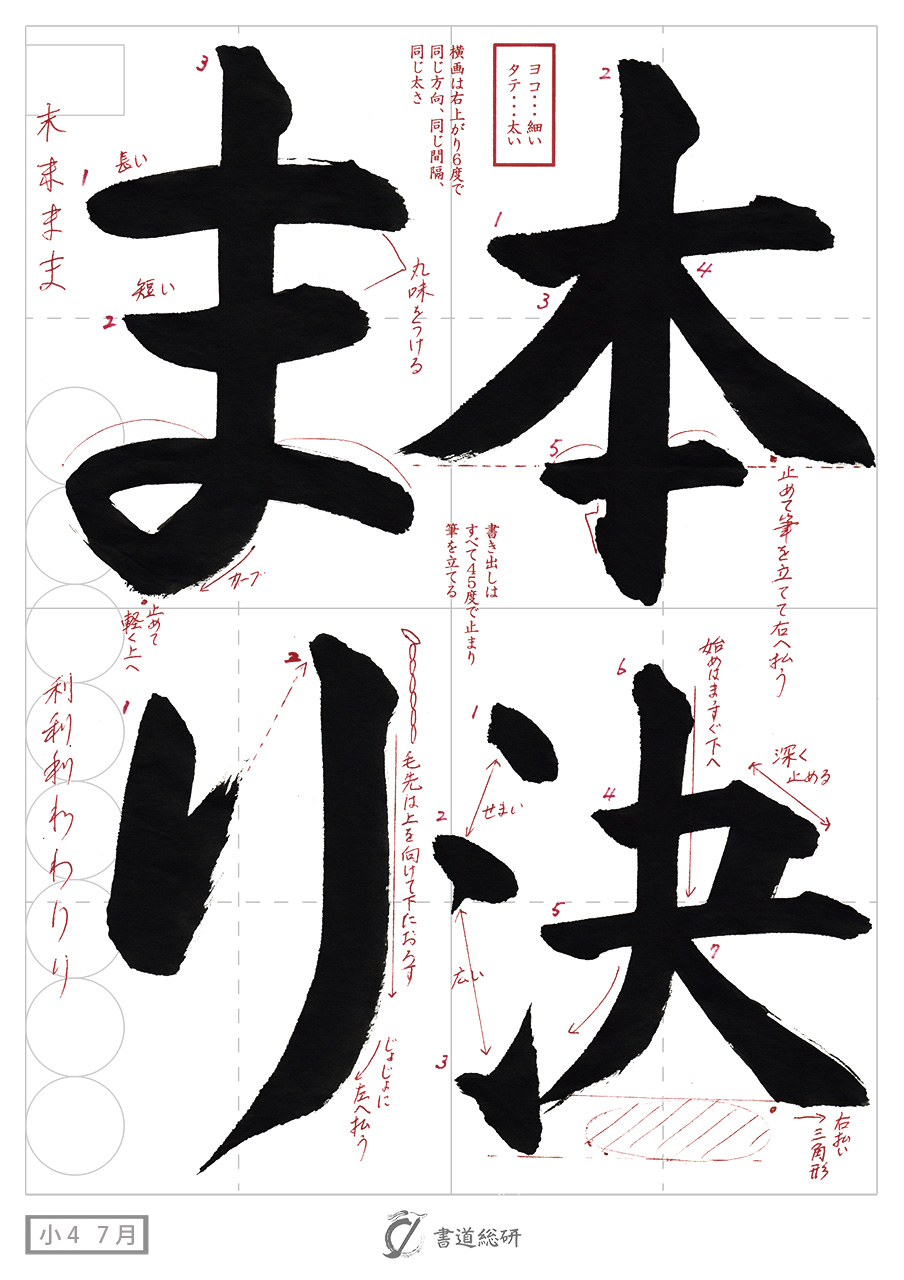 本決まり
ヨコ・・・細い
タテ・・・太い
横画は右上がり6度で
同じ方向、同じ間隔、
同じ太さ
2
1
3
4
5
止めて筆を立てて右へ払う
書き出しは
すべて45度で止まり
筆を立てる
6
始めはまっすぐ下へ
深く
止める
1
せまい
2
4
5
7
広い
3
右払い
三角形
3
長い
1
短い
2
丸味をつける
カーブ
止めて
軽く上へ
末
ま
ま
1
2
毛先は上を向けて下におろす
じょじょに
左へ払う
利
利
利
わ
わ
り
り
小4 7月
書道総研